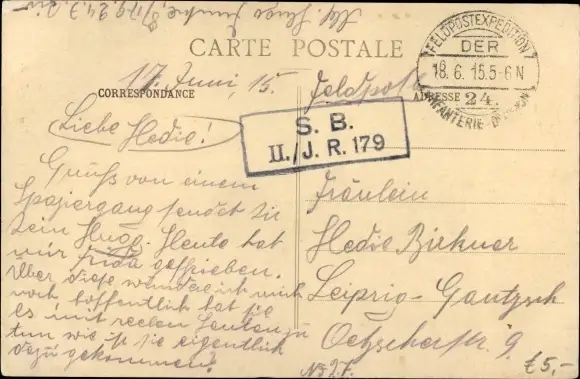 Abs. Hugo Funke, 8/179, 24. J. Div
CARTE POSTALE
FELDPOSTEXPEDITION
DER
18.6.15.5-6N
24.
INFANTERIE-DIVISION
17. Juni, 15.
Feldpost
CORRESPONDANCE
ADRESSE
S. B.
II./J. R. 179
Liebe Hedie!
Gruß von einem
Spaziergang sendet Dir
Dein Hugo. Heute hat
mir Frida geschrieben.
Über diese wundere ich mich
noch, hoffentlich hat sie
es mit reellen Leuten zu
tun wie ist sie eigentlich
dazu gekommen?
Fräulein
Hedie Birkner
Leipzig-Gautzsch
Oetzscherstr. 9.
£5,-